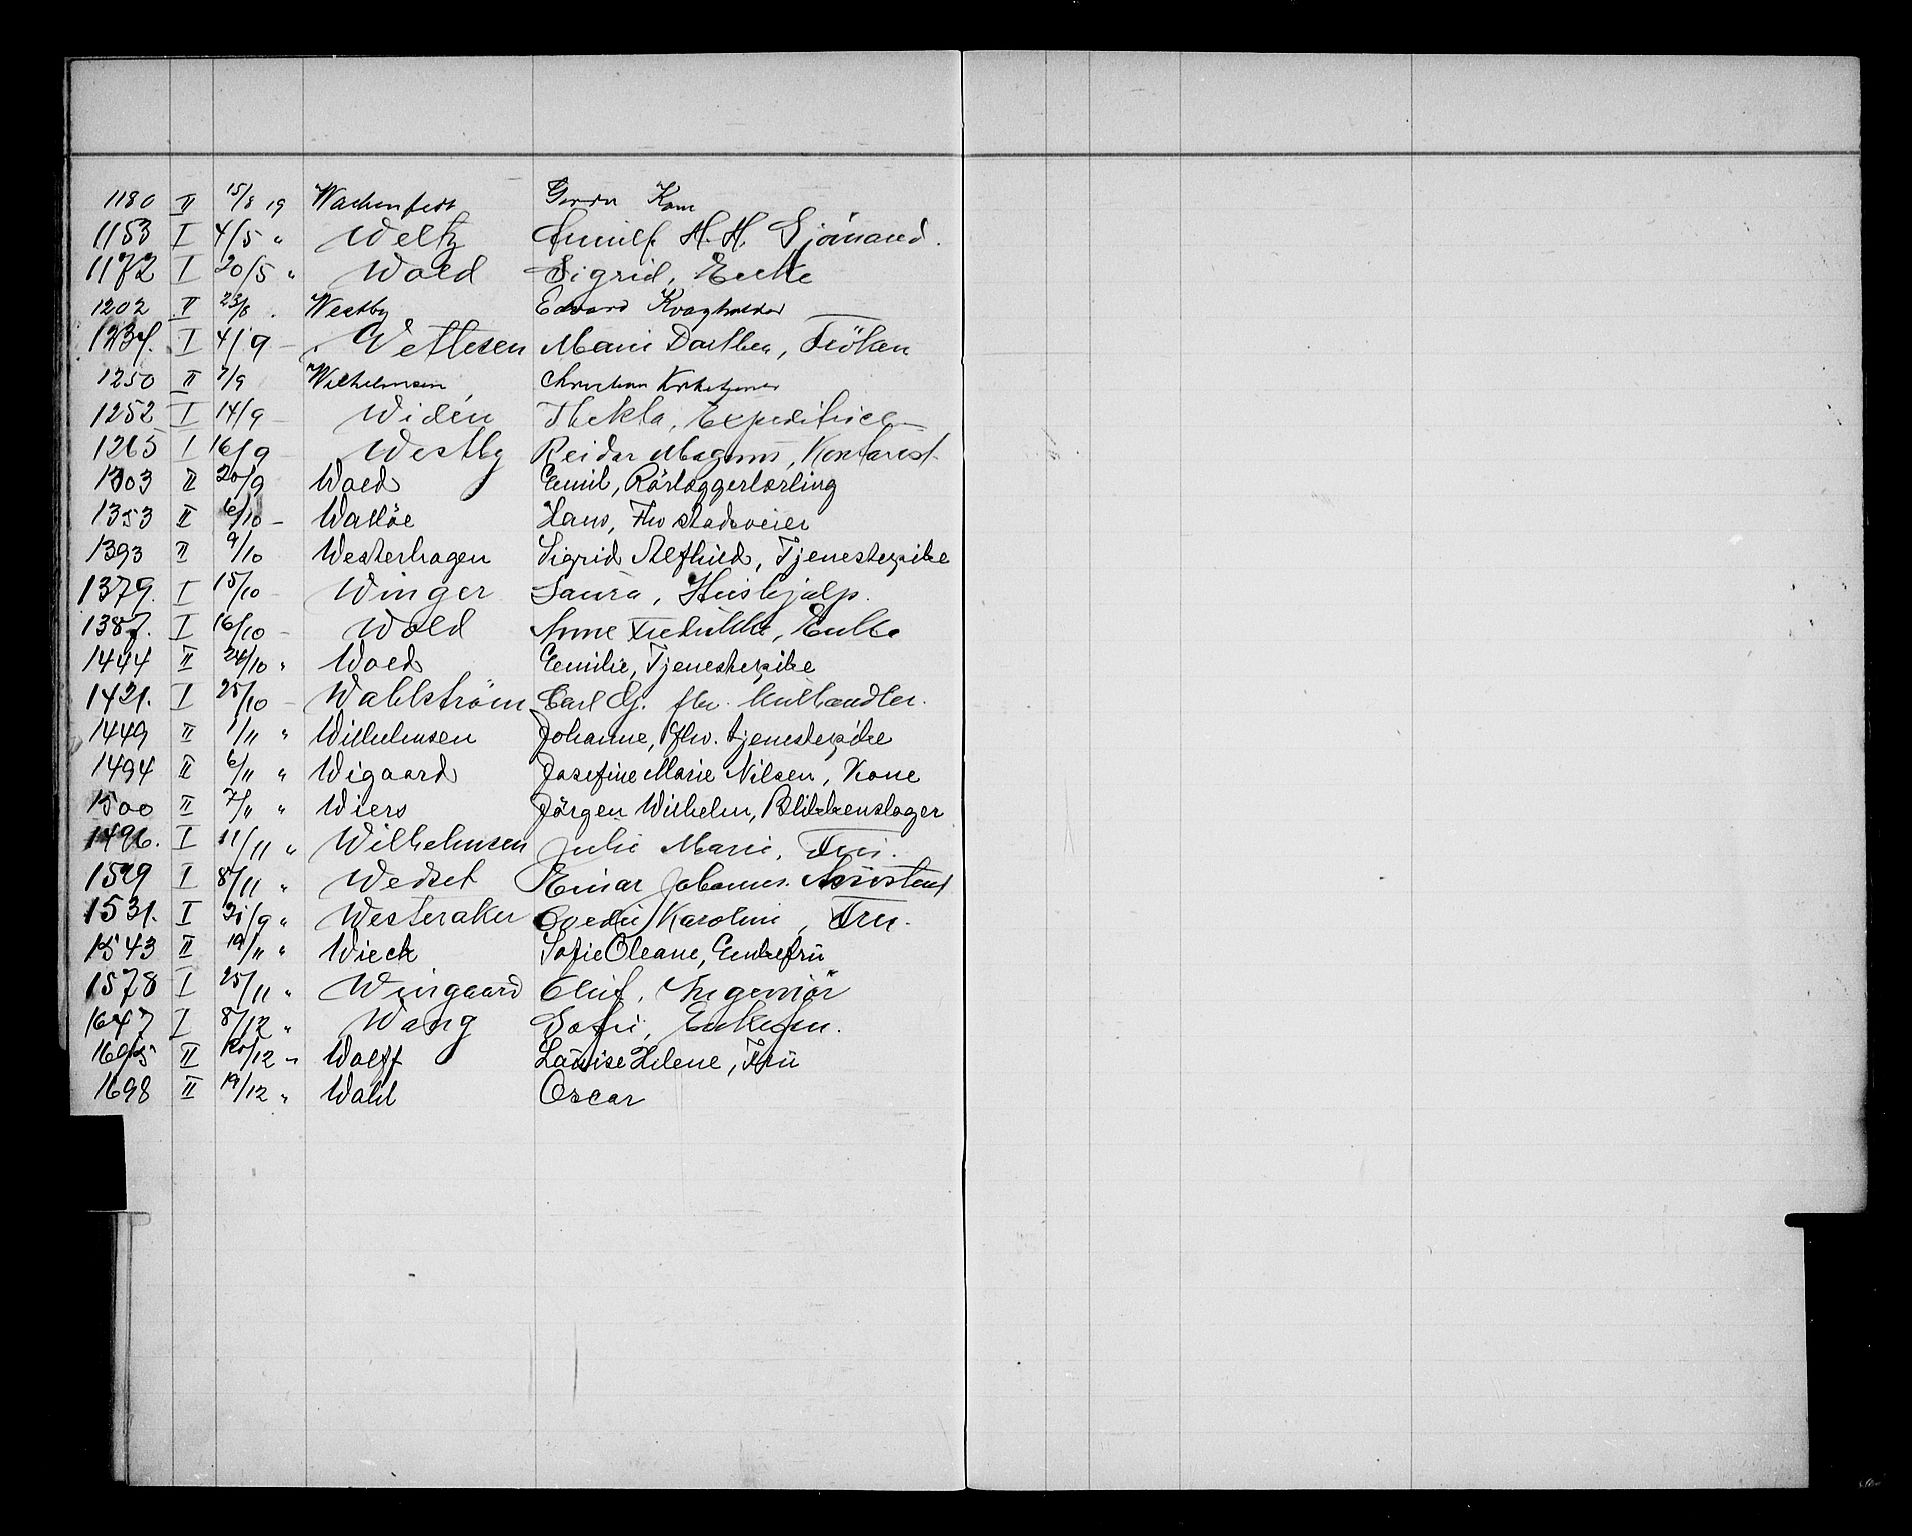 1180 II 15/8 19 Wachenfeldt Gerda Kone
1153 I 4/5 " Weltz Arnulf H. H. Sjömand.
1172 I 20/5 " Wold Sigrid, Enke
1202 II 23/8 . Westby Edvard Kvægholder
1234. I 4/9 - Wettesen Marie Dorthea, Fröken
1250 II 7/9 Wilhelmsen Christian Kirketjener
1252 I 14/9 - Widén Thekla, Expeditrice
1265 I 16/9 - Westby Reidar Magnus, Kontorist
1303 II 20/9 Wold Emil, Rörlæggerlærling
1353 II 6/10 - Walløe Hans, Fhv stadsveier
1393 II 9/10 Westerhagen Sigrid Alfhild, Tjenestepike
1379. I 15/10 - Winger Laura, Hushjælp.
1387. I 16/10 - Wold Anne Fredrikke, Enke
1444 II 24/10 " Wold Emilie, Tjenestepike
1421. I 25/10 - Wahlström Carl G. fhv. kulhandler.
1449 II 1/11 " Wilhelmsen Johanne, fhv. tjenestepike
1494 II 6/11 " Wigaard Josefine Marie Nilsen, Kone
1500 II 7/11 " Wiers Jörgen Wilhelm, Blikkenslager
1496. I 11/11 " Wilhelmsen Julie Marie, Fru.
1529 I 8/11 " Wedset Einar Johannes. Assistent
1531. I 21/9 " Westeraker Karoline, Fru.
1543 II 19/11 " Wieck Sofie Oleane, Enkefru
1578 I 25/11 " Wingaard Oluf, Ingeniör
1647 I 8/12 " Wang Sofie, Enkefru.
1695 II 20/12 " Wolff Lauise Helene, Fru
1698 II 19/12 " Wahl Oscar